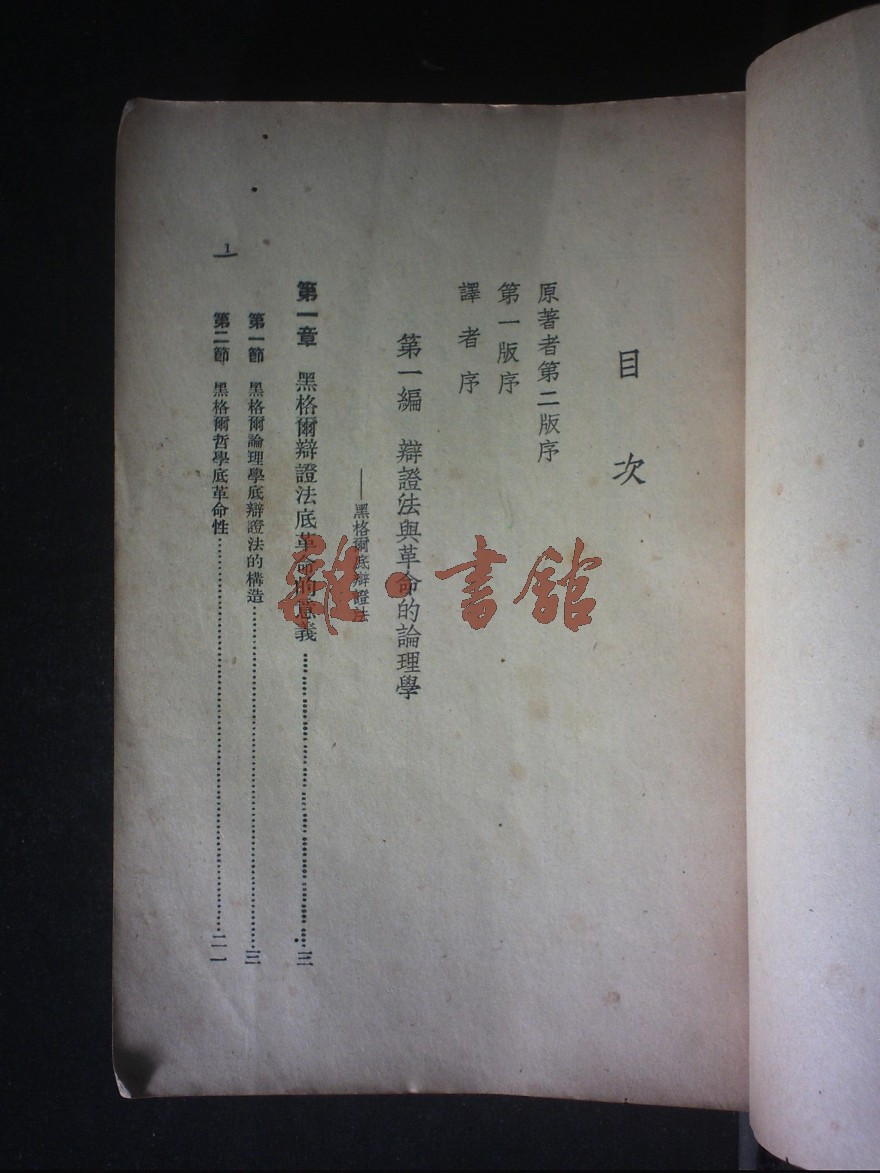 目次
原著者第二版序
第一版序
譯者序
第一編 辯證法與革命的論理學
——黑格爾底辯證法
第一章 黑格爾辯證法底革命的意義……三
第一節 黑格爾論理學底辯證法的構造……三
第二節 黑格爾哲學底革命性……二一
1
雜·書館